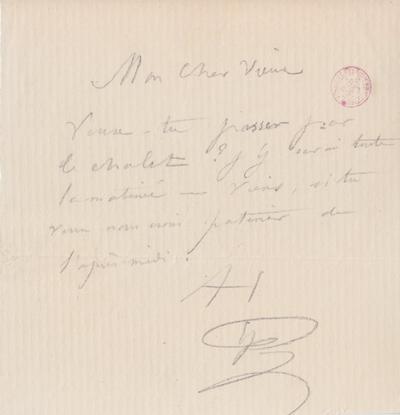 Mon cher Vieux
Veux-tu passer par
le chalet ? J'y serai toute
la matinée — Viens, si tu
veux nous irons patiner de
l'après-midi.